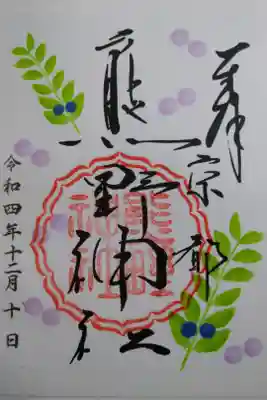 奉拝
京都
熊野神社
令和四年十二月十日